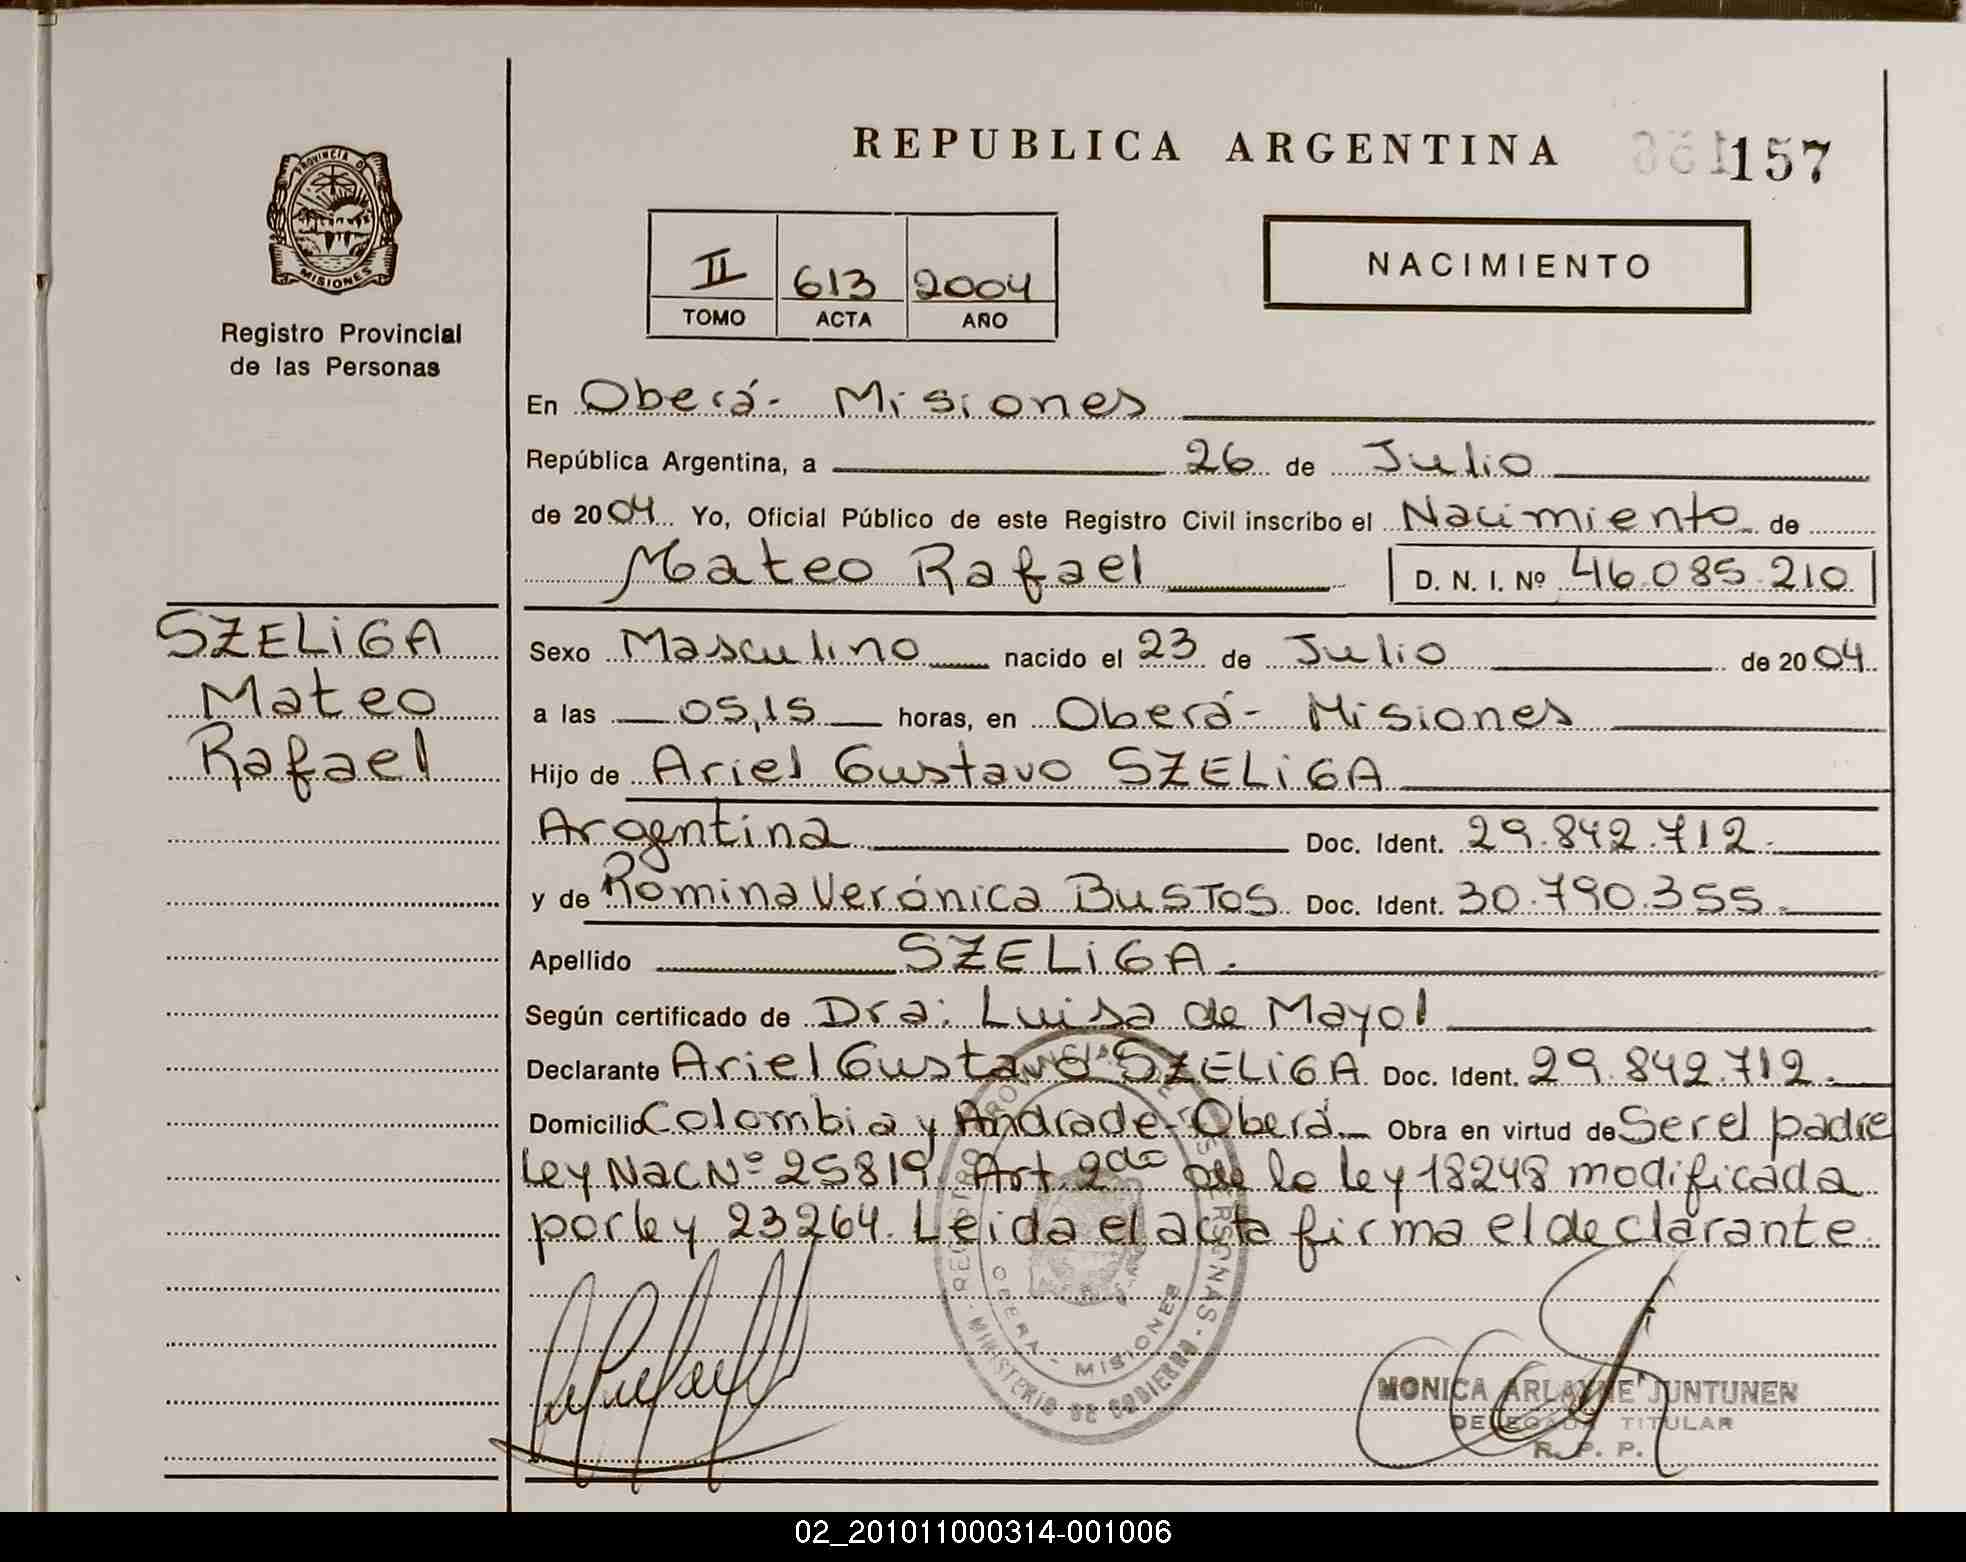 REPUBLICA ARGENTINA
157
PROVINCIA DE
MISIONES
Registro Provincial
de las Personas
II 613 2004
TOMO ACTA AÑO
NACIMIENTO
En Oberá- Misiones
República Argentina, a 26 de Julio
de 2004 Yo, Oficial Público de este Registro Civil inscribo el Nacimiento de
Mateo Rafael D. N. I. Nº 46.085.210
SZELiGA
Mateo
Rafael
Sexo Masculino nacido el 23 de Julio de 2004
a las 05,15 horas, en Oberá- Misiones
Hijo de Ariel Gustavo SZELiGA
Argentina Doc. Ident. 29.842.712.-
y de Romina Verónica BUSTOS Doc. Ident. 30.790.355.-
Apellido SZELiGA.-
Según certificado de Dra: Luisa de Mayol
Declarante Ariel Gustavo SZELiGA Doc. Ident. 29.842.712.-
Domicilio Colombia y Andrade-Oberá Obra en virtud de Ser el padre
Ley Nac Nº 25819. Art. 2do de la ley 18248 modificada
por ley 23264. Leida el acta firma el declarante
REGISTRO PROVINCIAL DE LAS PERSONAS - MINISTERIO DE GOBIERNO -
OBERA - MISIONES
MONICA ARLAYNE JUNTUNEN
DELEGADA TITULAR
R. P. P.
02_201011000314-001006